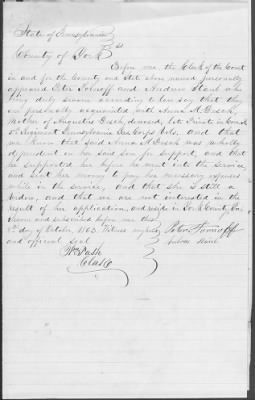 State of Pennsylvania
County of York SS
Before me, the Clerk of the Court
in and for the County and State above named personally
appeared Peter and Andrew Stank who
being duly sworn according to law say that they
are personally acquainted with Anna M.
Mother of Augustus deceased, late Private in
Regiment Pennsylvania Vols. and that
we know that said Anna M. was wholly
dependent on her said son for support, and that
he supported her before he went into the service,
and sent her money to pay her necessary expenses
while in the service, and that she is still a
widow, and that we are not interested in the
result of her application, and reside in York County, Pa.
Sworn and subscribed before me this
day of October, 1863. Witness my hand
and official seal
Peter
Andrew
Clerk